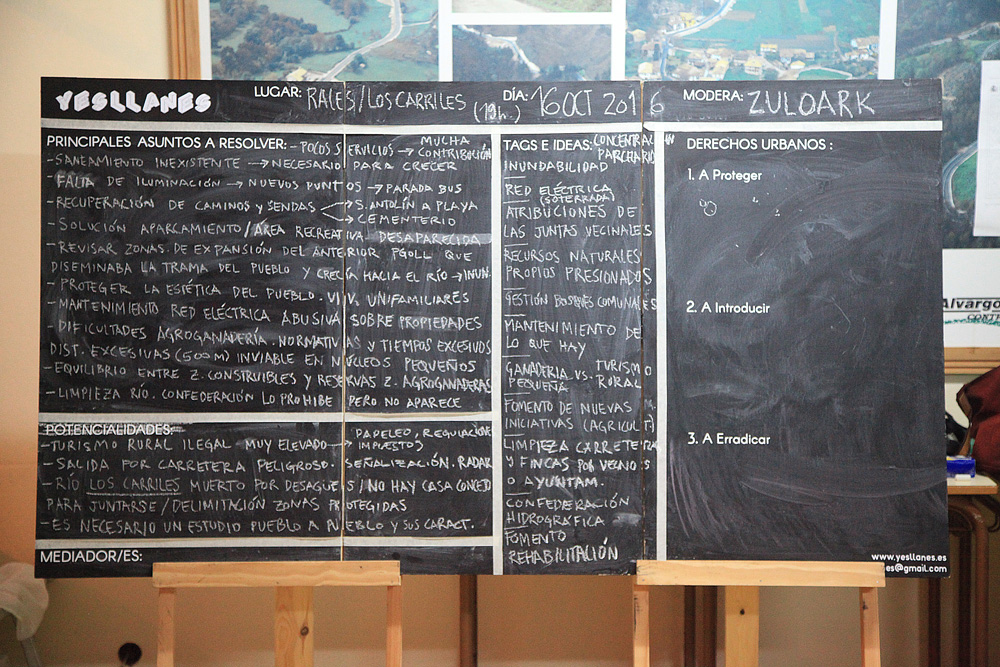 YESLLANES
LUGAR: RALES/LOS CARRILES (19h.)
DÍA: 16 OCT 2016
MODERA: ZULOARK
PRINCIPALES ASUNTOS A RESOLVER: - POCOS SERVICIOS → MUCHA CONTRIBUCIÓN
- SANEAMIENTO INEXISTENTE → NECESARIO PARA CRECER
- FALTA DE ILUMINACIÓN → NUEVOS PUNTOS → PARADA BUS
- RECUPERACIÓN DE CAMINOS Y SENDAS → S. ANTOLÍN A PLAYA
→ CEMENTERIO
- SOLUCIÓN APARCAMIENTO/ÁREA RECREATIVA DESAPARECIDA
- REVISAR ZONAS DE EXPANSIÓN DEL ANTERIOR PGOLL QUE
DISEMINABA LA TRAMA DEL PUEBLO Y CRECÍA HACIA EL RÍO → INUN.
- PROTEGER LA ESTÉTICA DEL PUEBLO. VIV. UNIFAMILIARES
- MANTENIMIENTO RED ELÉCTRICA ABUSIVA SOBRE PROPIEDADES
- DIFICULTADES AGROGANADERÍA. NORMATIVAS Y TIEMPOS EXCESIVOS
DIST. EXCESIVAS (500M) INVIABLE EN NÚCLEOS PEQUEÑOS
- EQUILIBRIO ENTRE Z. CONSTRUIBLES Y RESERVAS Z. AGROGANADERAS
- LIMPIEZA RÍO. CONFEDERACIÓN LO PROHIBE PERO NO APARECE
POTENCIALIDADES:
- TURISMO RURAL ILEGAL MUY ELEVADO → PAPELEO, REGULACIÓN
IMPUESTOS
- SALIDA POR CARRETERA PELIGROSO. SEÑALIZACIÓN. RADAR
- RÍO LOS CARRILES MUERTO POR DESAGÜES / NO HAY CASA CONCEJO
PARA JUNTARSE/DELIMITACIÓN ZONAS PROTEGIDAS
- ES NECESARIO UN ESTUDIO PUEBLO A PUEBLO Y SUS CARACT.
MEDIADOR/ES:
TAGS E IDEAS: CONCENTRAC
PARCHARIO
INUNDABILIDAD
RED ELÉCTRICA
(SOTERRADA)
ATRIBUCIONES DE
LAS JUNTAS VECINALES
RECURSOS NATURALES
PROPIOS PRESIONADOS
GESTIÓN BOSQUES COMUNALES
MANTENIMIENTO DE
LO QUE HAY
GANADERIA VS. TURISMO
PEQUEÑA RURAL
FOMENTO DE NUEVAS
INICIATIVAS (AGRICULT)
LIMPIEZA CARRETERA
Y FINCAS POR VECINOS
O AYUNTAM.
CONFEDERACIÓN
HIDROGRÁFICA
FOMENTO
REHABILITACIÓN
DERECHOS URBANOS :
1. A Proteger
2. A Introducir
3. A Erradicar
www.yesllanes.es
es@gmail.com
Alvargo